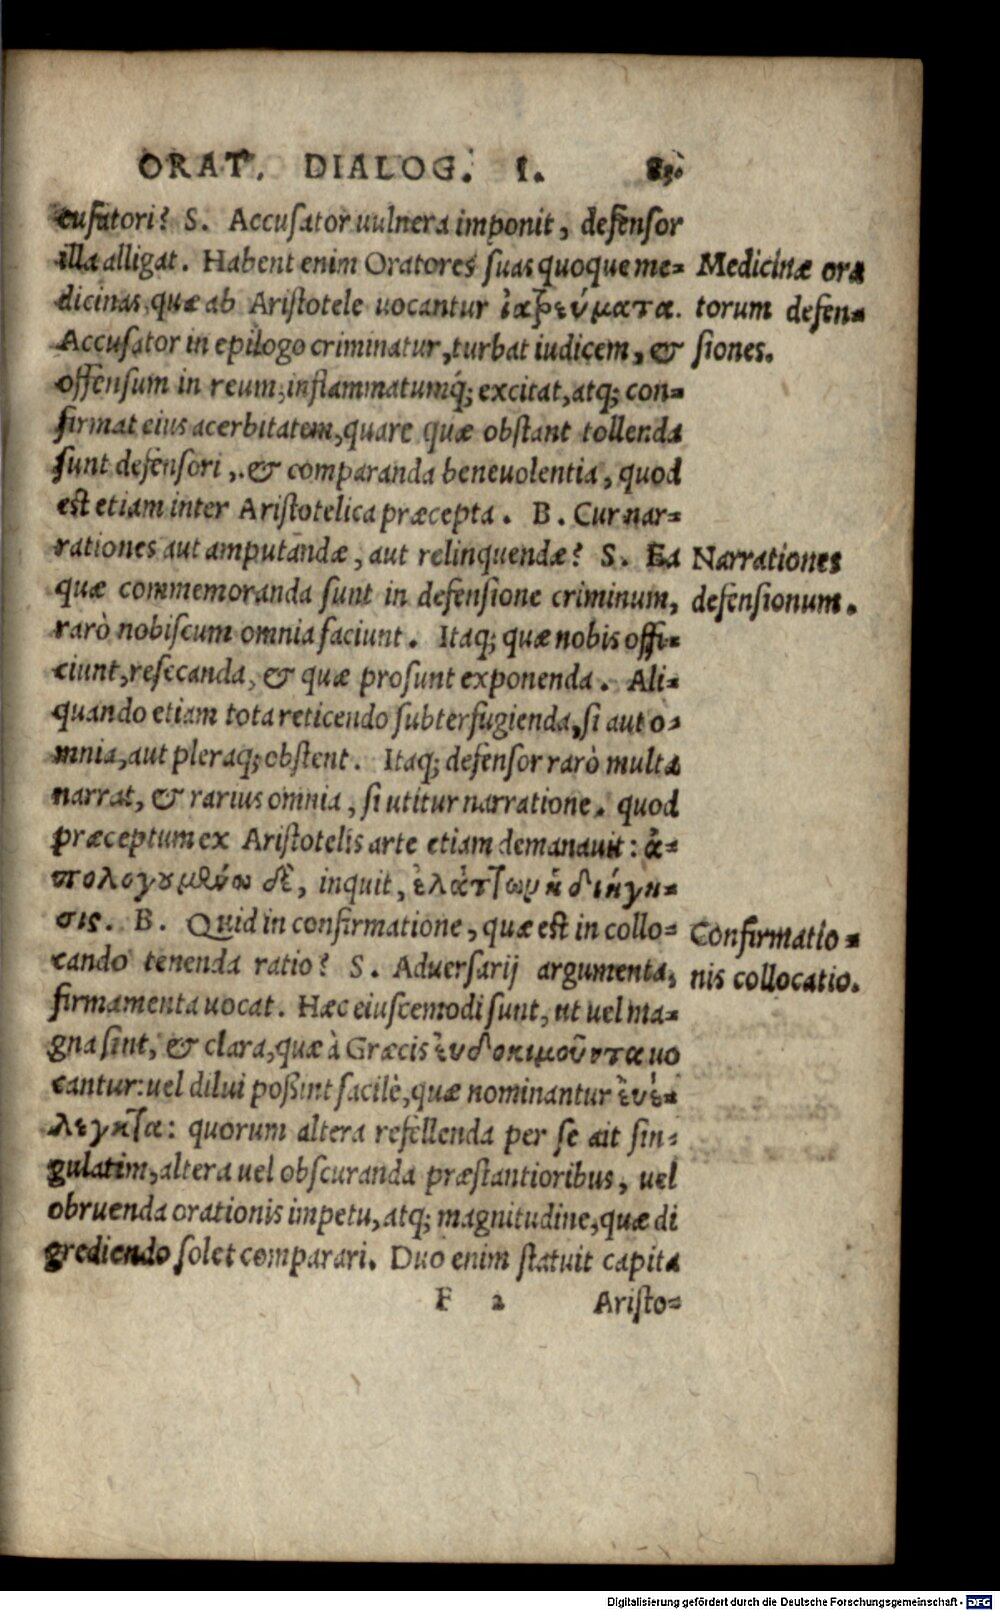 ORAT. DIALOG. I. 83.
cusatori? S. Accusator uulnera imponit, defensor
illa alligat. Habent enim Oratores suas quoque me-
dicinas, quæ ab Aristotele uocantur ἰατρεύματα.
Accusator in epilogo criminatur, turbat iudicem, &
offensum in reum, inflammatumq; excitat, atq; con-
firmat eius acerbitatem, quare quæ obstant tollenda
sunt defensori, & comparanda beneuolentia, quod
est etiam inter Aristotelica præcepta. B. Cur nar-
rationes aut amputandæ, aut relinquendæ? S. Ea
quæ commemoranda sunt in defensione criminum,
rarò nobiscum omnia faciunt. Itaq; quæ nobis offi-
ciunt, resecanda, & quæ prosunt exponenda. Ali-
quando etiam tota reticendo subterfugienda, si aut o-
mnia, aut pleraq; obstent. Itaq; defensor rarò multa
narrat, & rarius omnia, si utitur narratione. quod
præceptum ex Aristotelis arte etiam demanauit: ἀ-
πολογουμένῳ δὲ, inquit, ἐλάττων ἡ διήγη-
σις. B. Quid in confirmatione, quæ est in collo-
cando tenenda ratio? S. Aduersarij argumenta,
firmamenta uocat. Hæc eiuscemodi sunt, ut uel ma-
gna sint, & clara, quæ à Græcis εὐδοκιμοῦντα uo
cantur: uel dilui poßint facilè, quæ nominantur εὐέ-
λεγκτα: quorum altera refellenda per se ait sin-
gulatim, altera uel obscuranda præstantioribus, uel
obruenda orationis impetu, atq; magnitudine, quæ di
grediendo solet comparari. Duo enim statuit capita
F 2 Aristo-
Medicinæ ora
torum defen-
siones.
Narrationes
defensionum.
Confirmatio-
nis collocatio.
Digitalisierung gefördert durch die Deutsche Forschungsgemeinschaft - DFG